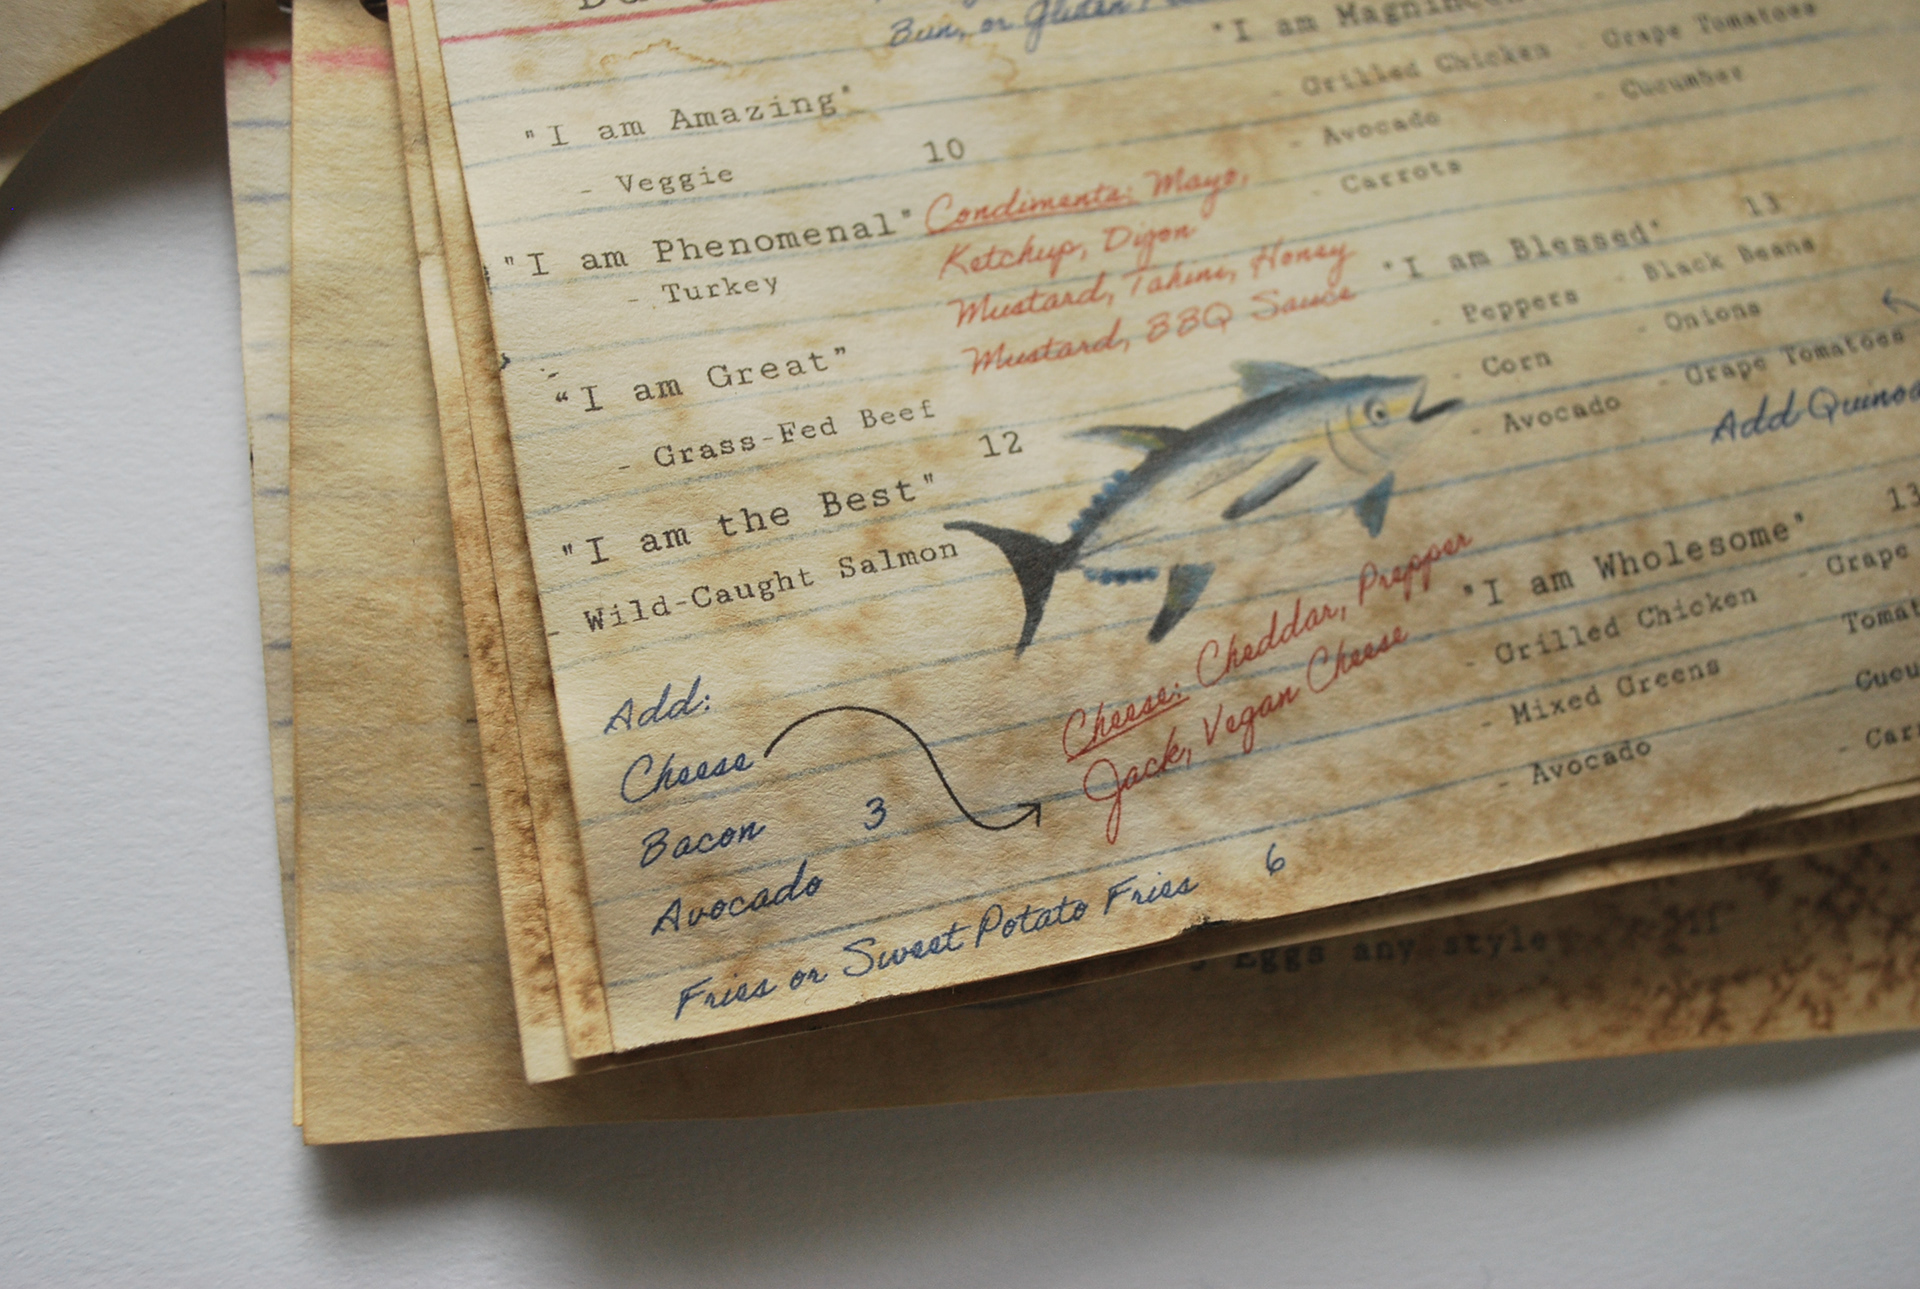 Bun, or Gluten
"I am Amazing"
- Veggie
10
"I am Phenomenal"
- Turkey
"I am Great"
- Grass-Fed Beef
12
"I am the Best"
- Wild-Caught Salmon
Condiments: Mayo,
Ketchup, Dijon
Mustard, Tahini, Honey
Mustard, BBQ Sauce
Add:
Cheese
Bacon 3
Avocado
Cheese: Cheddar, Prepper
Jack, Vegan Cheese
Fries or Sweet Potato Fries 6
"I am
- Grilled Chicken - Grape Tomatoes
- Avocado - Cucumber
- Carrots
"I am Blessed" 13
- Peppers - Black Beans
- Corn - Onions
- Avocado - Grape Tomatoes
Add Quinoa
"I am Wholesome" 13
- Grilled Chicken - Grape
- Mixed Greens
- Avocado
Eggs any style 11